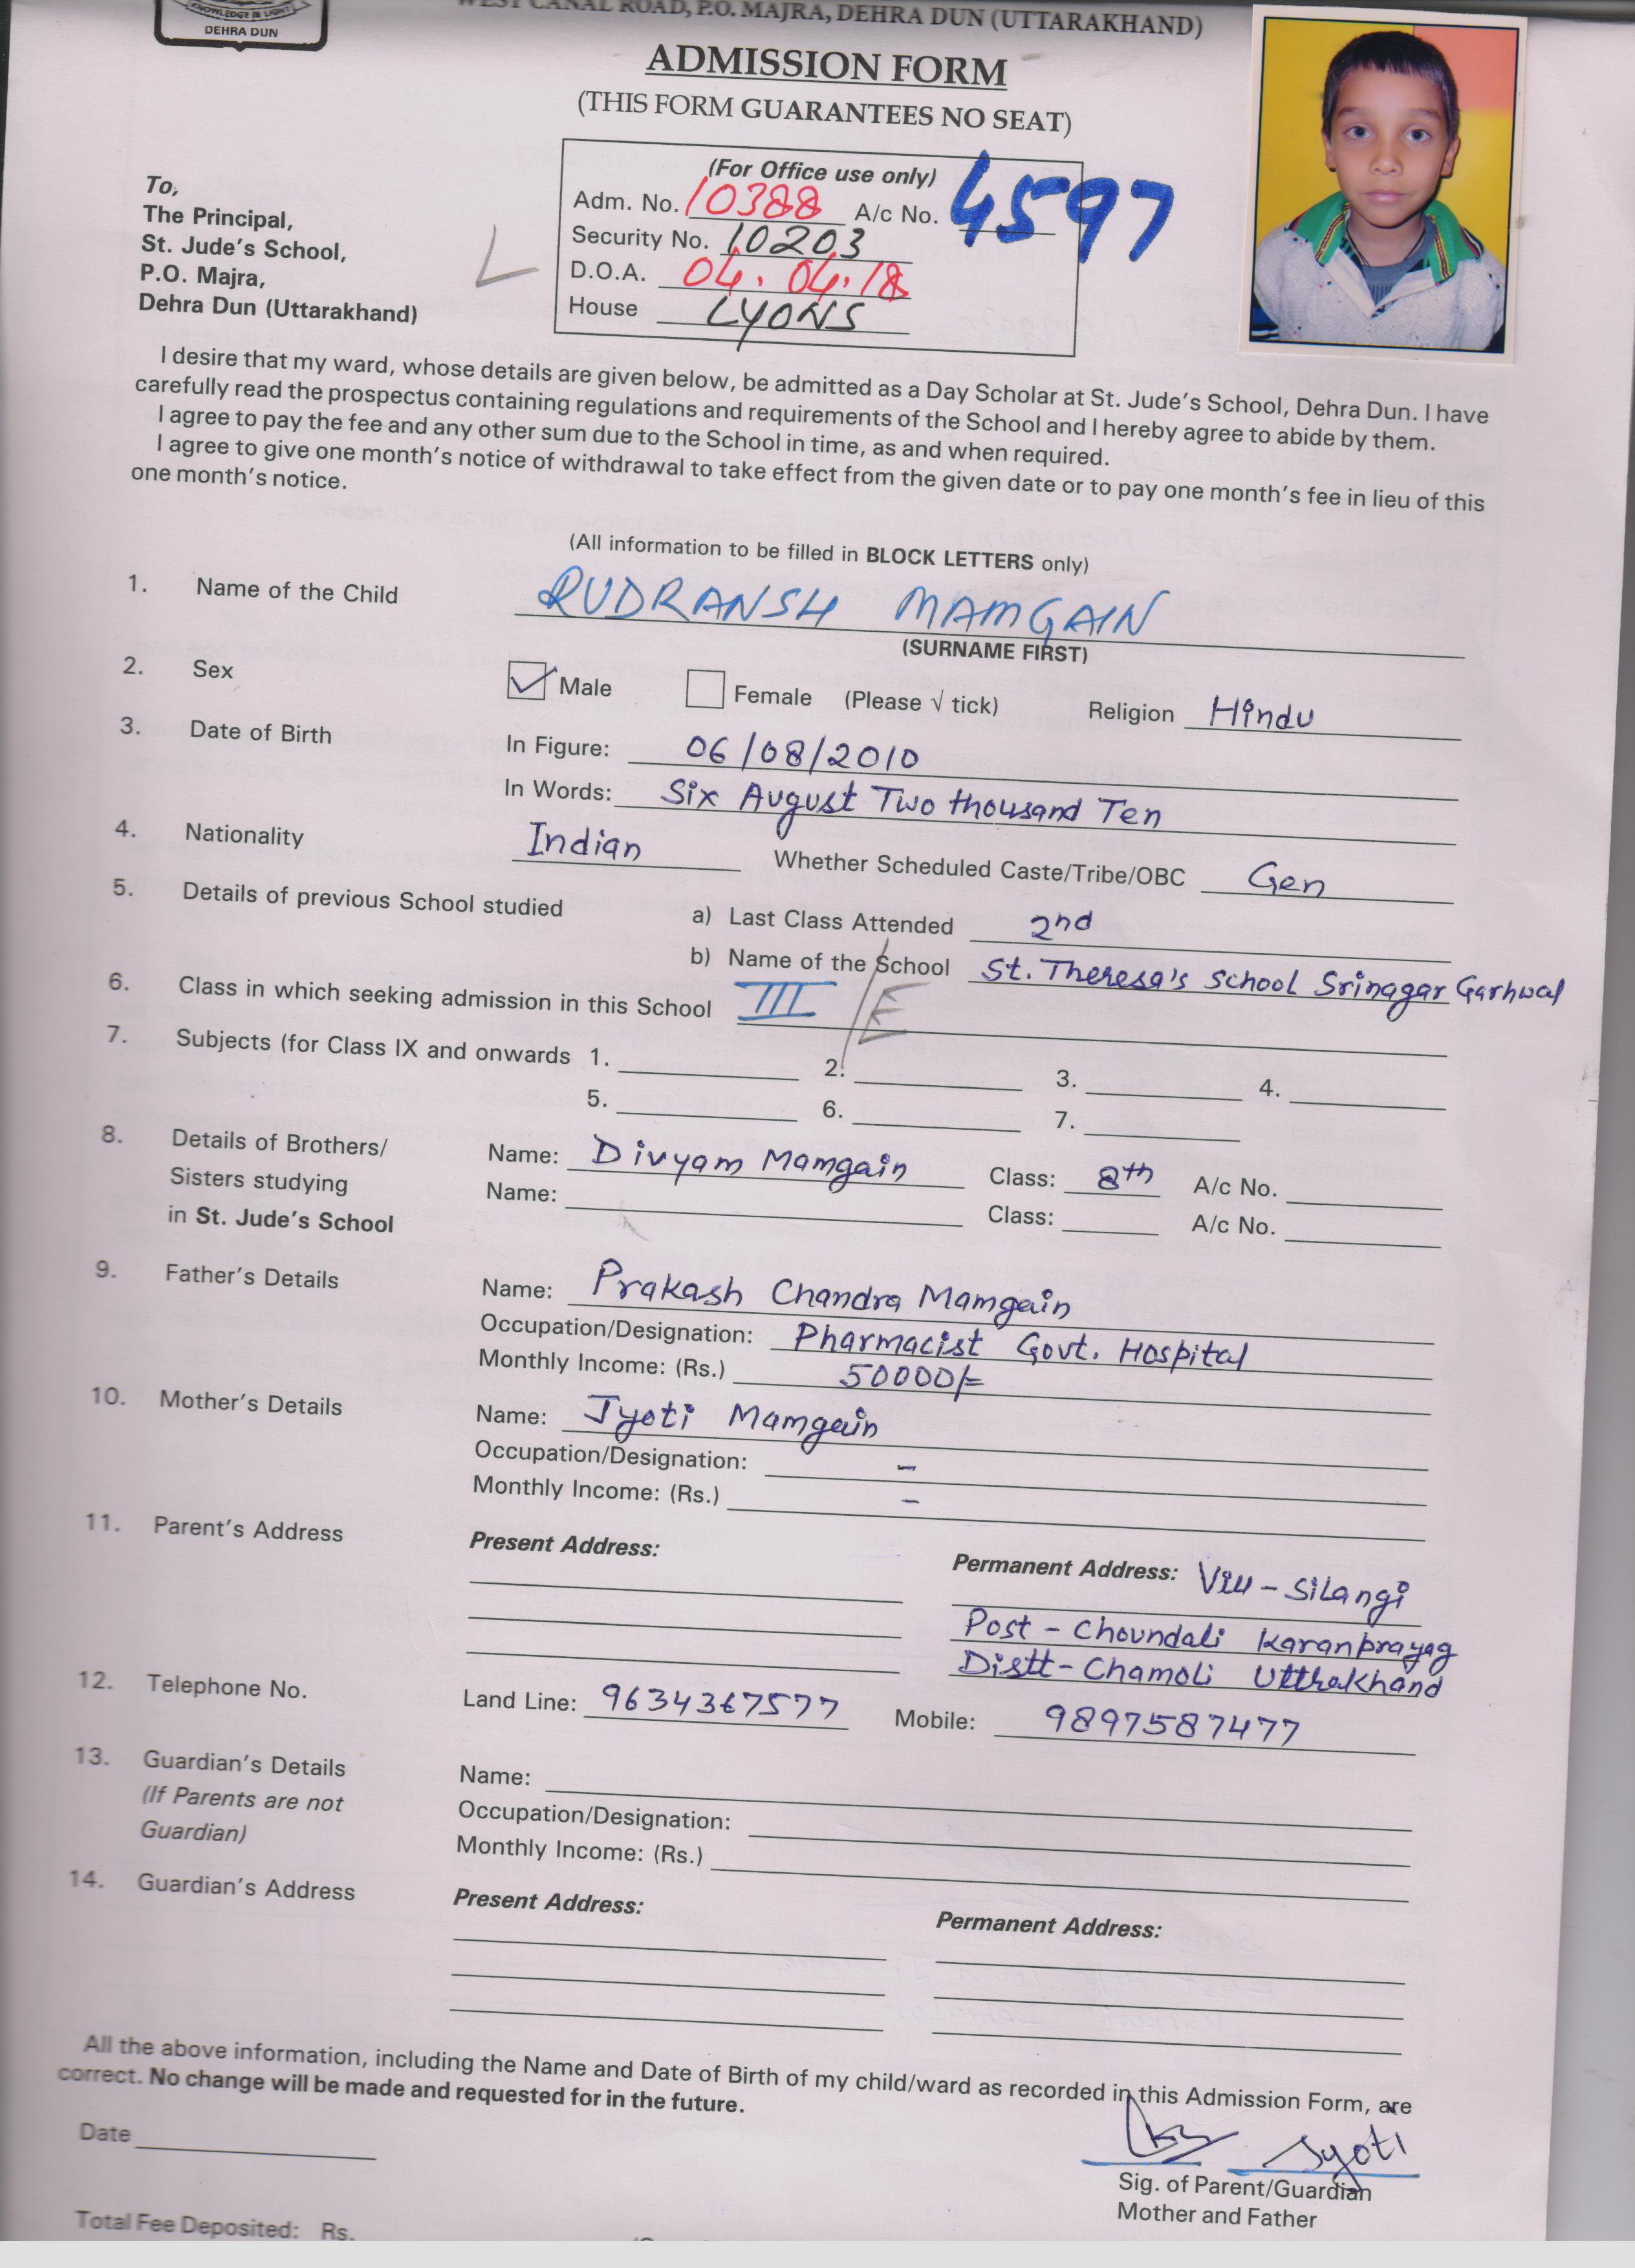 KNOWLEDGE IS LIGHT
DEHRA DUN
WEST CANAL ROAD, P.O. MAJRA, DEHRA DUN (UTTARAKHAND)
ADMISSION FORM
(THIS FORM GUARANTEES NO SEAT)
(For Office use only)
Adm. No. 10388 A/c No. 4597
Security No. 10203
D.O.A. 04.04.18
House LYONS
To,
The Principal,
St. Jude's School,
P.O. Majra,
Dehra Dun (Uttarakhand)
I desire that my ward, whose details are given below, be admitted as a Day Scholar at St. Jude's School, Dehra Dun. I have
carefully read the prospectus containing regulations and requirements of the School and I hereby agree to abide by them.
I agree to pay the fee and any other sum due to the School in time, as and when required.
I agree to give one month's notice of withdrawal to take effect from the given date or to pay one month's fee in lieu of this
one month's notice.
(All information to be filled in BLOCK LETTERS only)
1. Name of the Child RUDRANSH MAMGAIN
(SURNAME FIRST)
2. Sex Male Female (Please √ tick) Religion Hindu
3. Date of Birth In Figure: 06/08/2010
In Words: Six August Two thousand Ten
4. Nationality Indian Whether Scheduled Caste/Tribe/OBC Gen
5. Details of previous School studied a) Last Class Attended 2nd
b) Name of the School St. Theresa's School Srinagar Garhwal
6. Class in which seeking admission in this School III / E
7. Subjects (for Class IX and onwards 1. 2. 3. 4.
5. 6. 7.
8. Details of Brothers/ Name: Divyam Mamgain Class: 8th A/c No.
Sisters studying Name: Class: A/c No.
in St. Jude's School
9. Father's Details Name: Prakash Chandra Mamgain
Occupation/Designation: Pharmacist Govt. Hospital
Monthly Income: (Rs.) 50000/=
10. Mother's Details Name: Jyoti Mamgain
Occupation/Designation: -
Monthly Income: (Rs.) -
11. Parent's Address Present Address: Permanent Address: Vill - Silangi
Post - Choundali Karanprayag
Distt- Chamoli Utthrakhand
12. Telephone No. Land Line: 9634367577 Mobile: 9897587477
13. Guardian's Details Name:
(If Parents are not Occupation/Designation:
Guardian) Monthly Income: (Rs.)
14. Guardian's Address Present Address: Permanent Address:
All the above information, including the Name and Date of Birth of my child/ward as recorded in this Admission Form, are
correct. No change will be made and requested for in the future.
Date
Jyoti
Sig. of Parent/Guardian
Mother and Father
Total Fee Deposited: Rs.